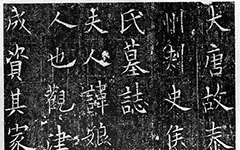 大唐故秦
州刾史侯
氏墓誌
夫人諱娘
人也觀津
成資其家